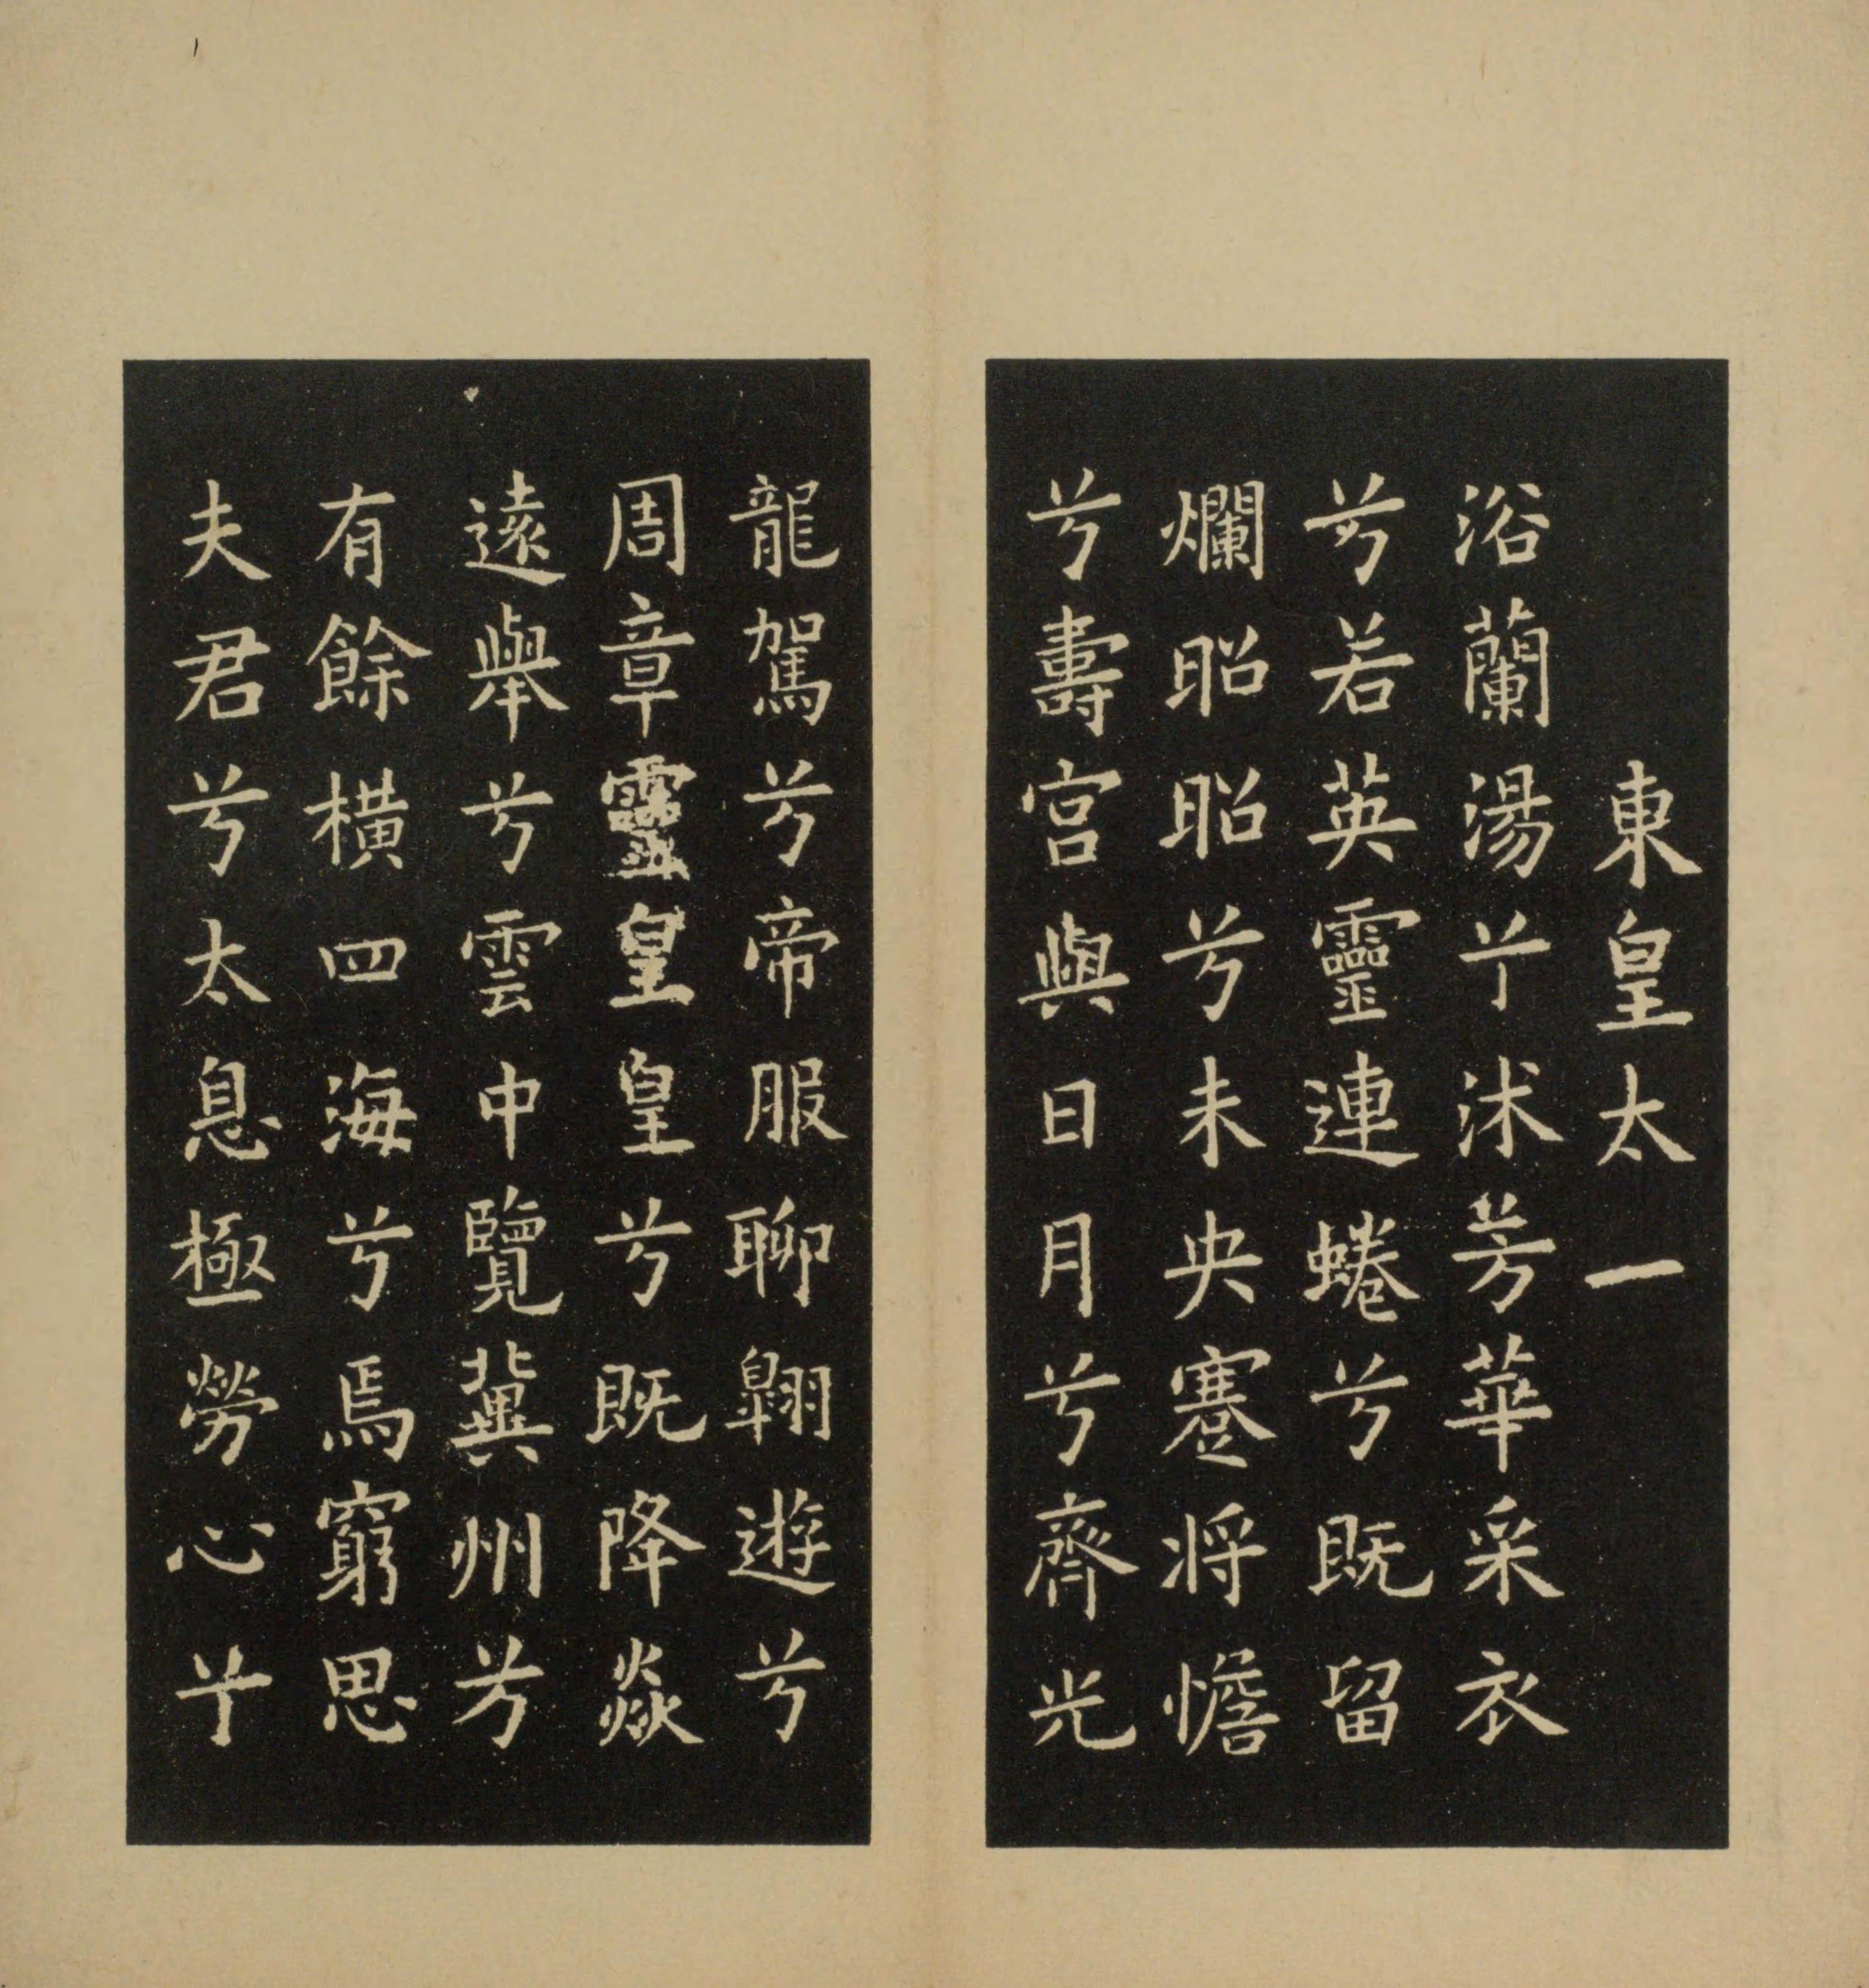 東皇太一
浴蘭湯兮沐芳華采衣
兮若英靈連蜷兮既留
爛昭昭兮未央蹇将憺
兮壽宮與日月兮齊光
龍駕兮帝服聊翱遊兮
周章靈皇皇兮既降焱
遠舉兮雲中覽冀州兮
有餘橫四海兮焉窮思
夫君兮太息極勞心兮